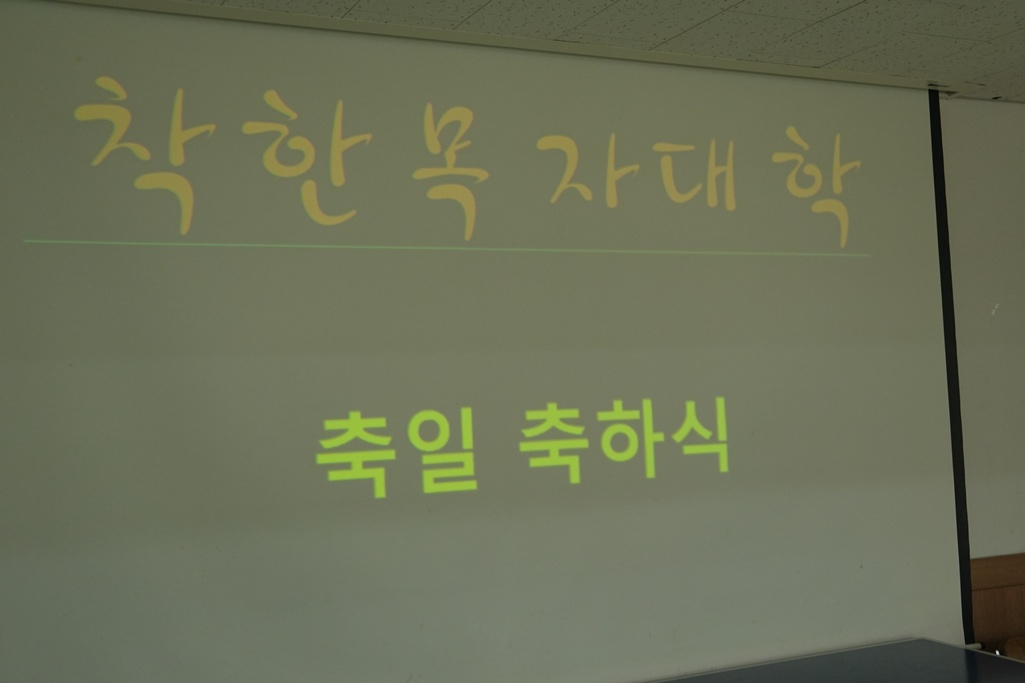 착한 목자대학
축일 축하식